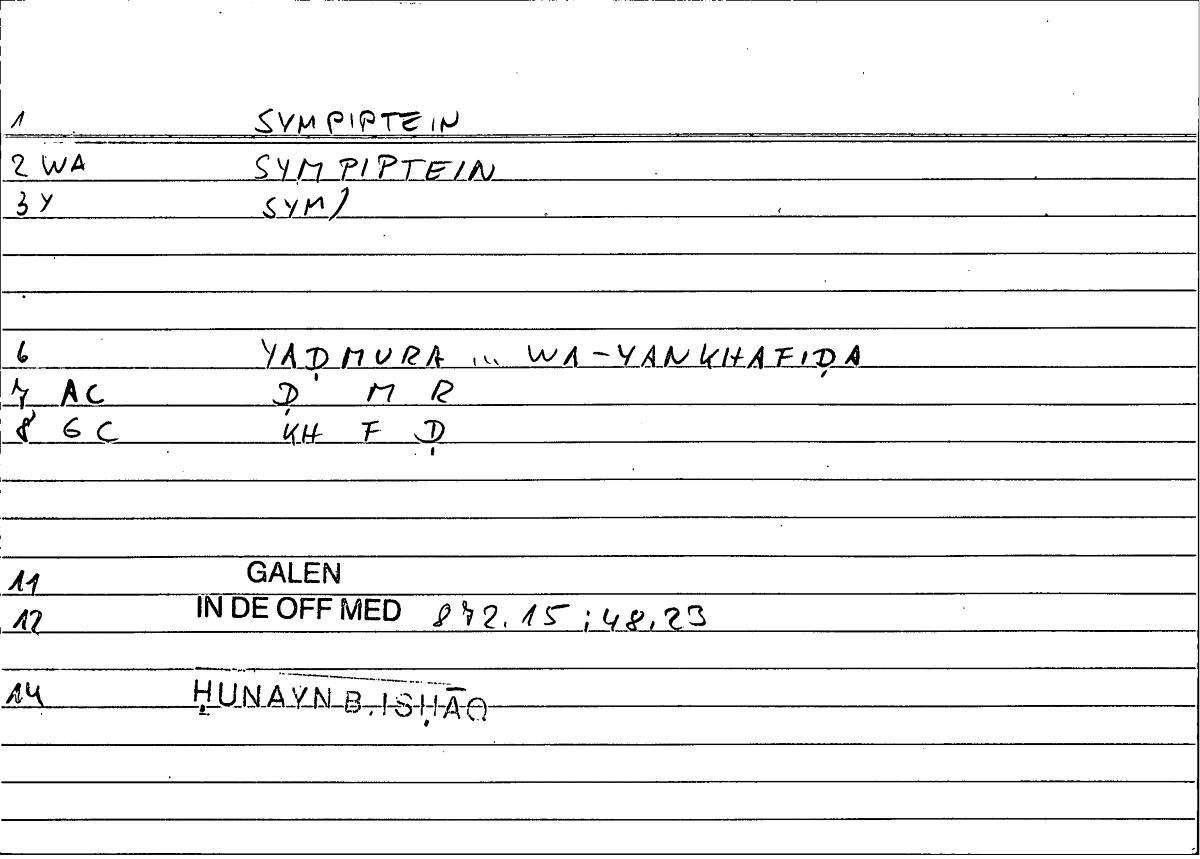 1 SYMPIPTEIN
2 WA SYMPIPTEIN
3 Y SYM)
6 YAḌMURA ... WA-YANKHAFIḌA
7 AC Ḍ M R
8 GC KH F Ḍ
11 GALEN
12 IN DE OFF MED 872.15;48.23
14 ḤUNAYN B. ISḤĀQ